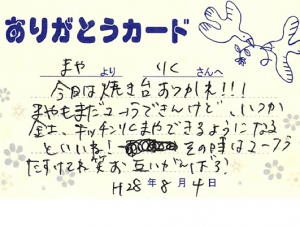 ありがとうカード
まや より りく さんへ
今日は焼き台おつかれ!!!
まやもまだユーうできんけど、いつか
金土、キッチンりくまやできるようになる
といいね! その時はユーフラ
たすけてね笑お互いがんばろう
H28年8月4日